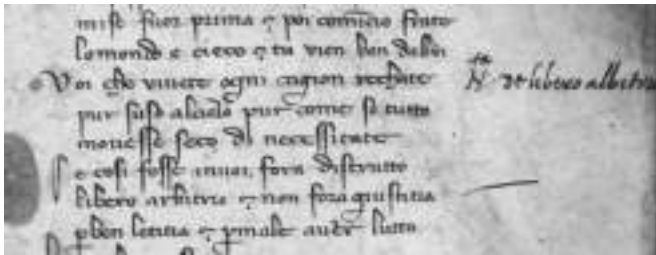 mise fuor prima ⁊ poi comincio frate
lomondo e cieco ⁊ tu vien ben dalui
Voi che vivete ogni cagion rechate
pur suso alcielo pur come se tutto
movesse seco di necessitate
se cosi fosse invoi fora distrutto
libero arbitrio ⁊ non fora giustitia
ꝑ ben letitia ⁊ ꝑ male aver lutto
Nota de libero albitrio